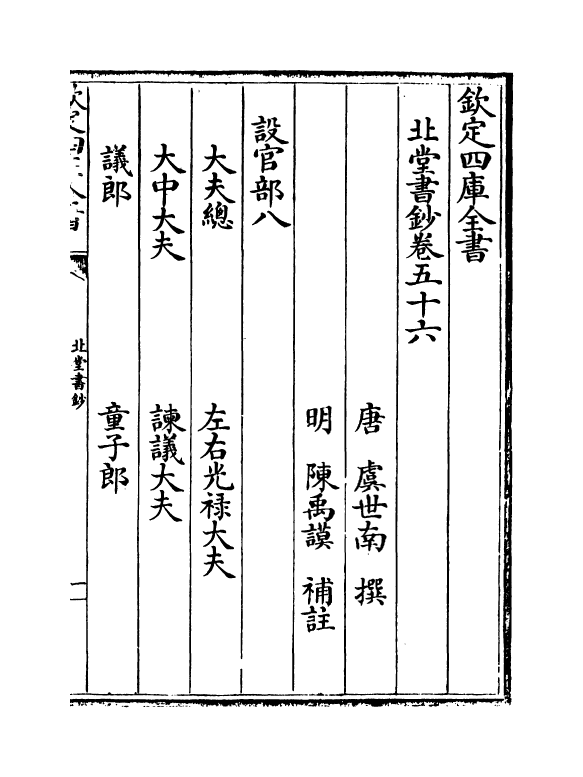 欽定四庫全書
北堂書鈔卷五十六
唐 虞世南 撰
明 陳禹謨 補註
設官部八
大夫總 左右光禄大夫
大中大夫 諫議大夫
議郎 童子郎
北堂書鈔
一